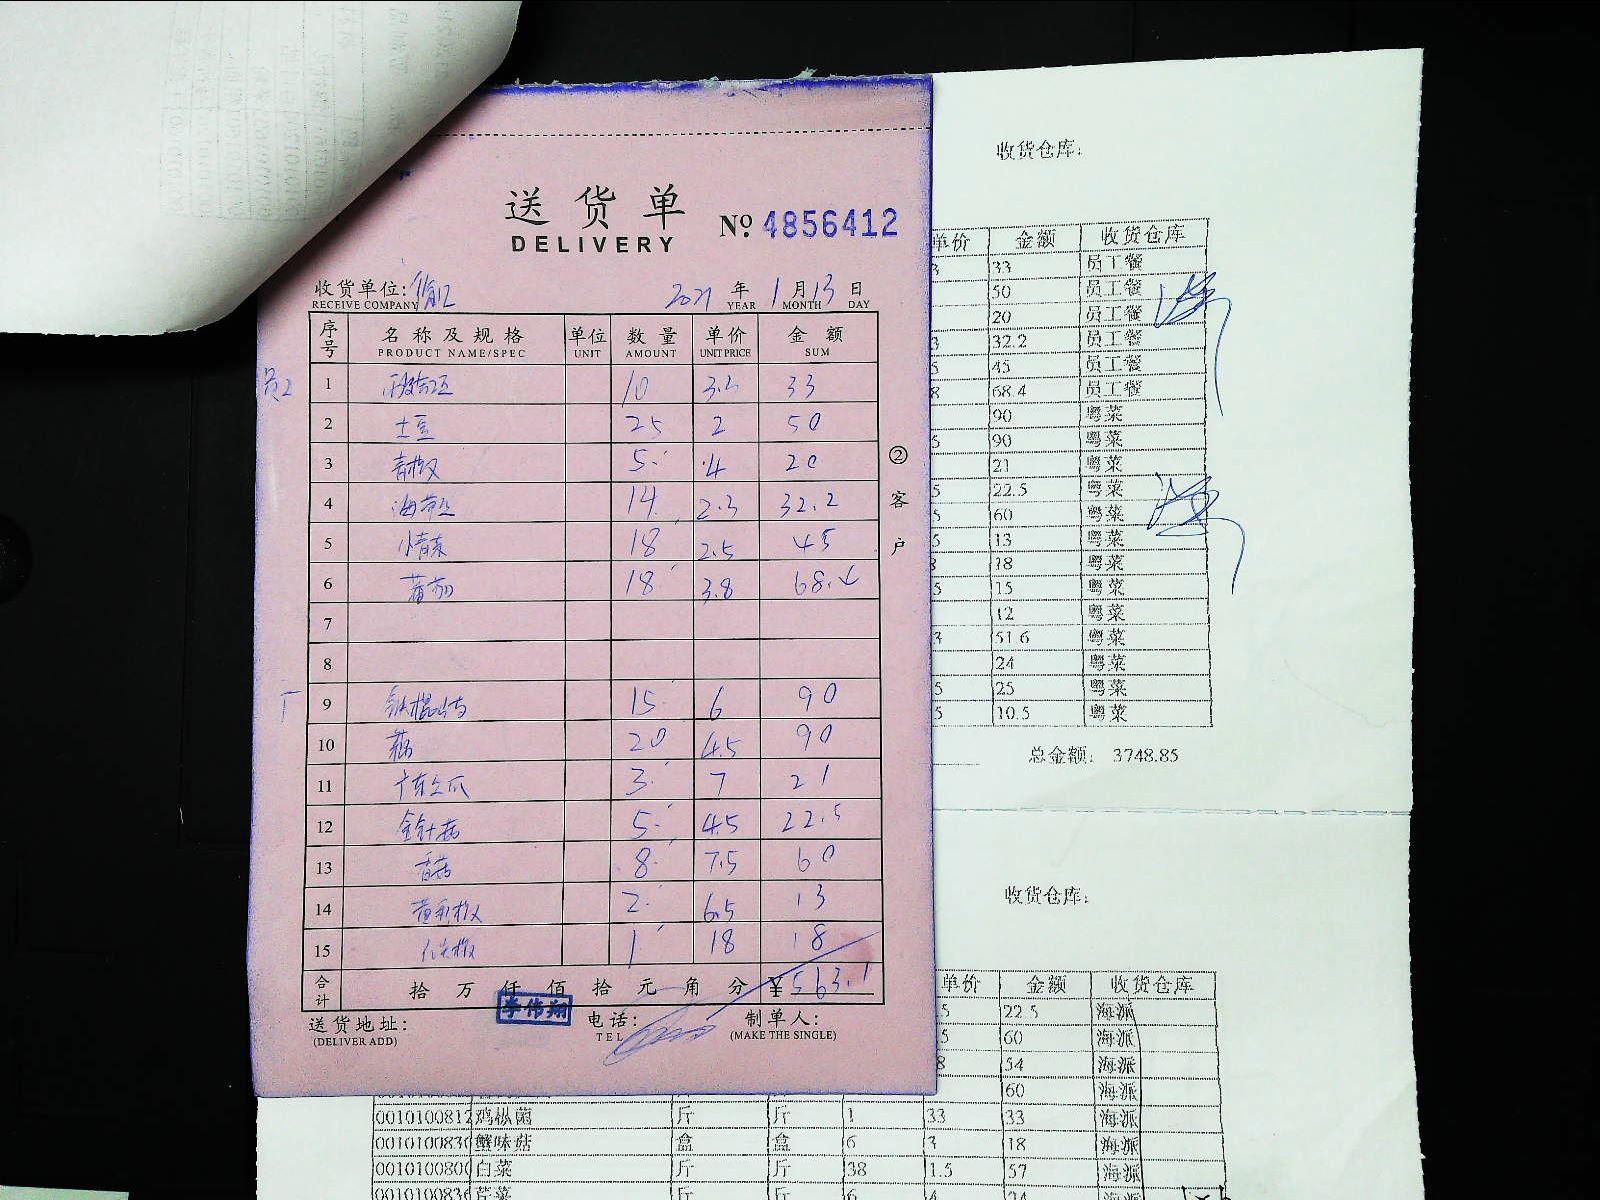 送货单
DELIVERY
№ 4856412
收货单位:
RECEIVE COMPANY
2021 年 1 月 13 日
YEAR MONTH DAY
序号 名称及规格 单位 数量 单价 金额
PRODUCT NAME/SPEC UNIT AMOUNT UNIT PRICE SUM
员工
1 10 3.3 33
2 土豆 25 2 50
3 青椒 5 4 20
4 海带丝 14 2.3 32.2
5 小青菜 18 2.5 45
6 蕃茄 18 3.8 68.4
7
8
9 铁棍山药 15 6 90
10 藕 20 4.5 90
11 3 7 21
12 金针菇 5 4.5 22.5
13 香菇 8 7.5 60
14 黄彩椒 2 6.5 13
15 1 18 18
合计 拾 万 仟 佰 拾 元 角 分 ¥563.1
李伟翔
送货地址:
(DELIVER ADD)
电话:
TEL
制单人:
(MAKE THE SINGLE)
②客户
收货仓库:
单价 金额 收货仓库
3 33 员工餐
50 员工餐
20 员工餐
3 32.2 员工餐
5 45 员工餐
8 68.4 员工餐
90 粤菜
5 90 粤菜
21 粤菜
5 22.5 粤菜
5 60 粤菜
5 13 粤菜
18 粤菜
5 15 粤菜
12 粤菜
3 51.6 粤菜
24 粤菜
5 25 粤菜
5 10.5 粤菜
总金额: 3748.85
收货仓库:
单价 金额 收货仓库
5 22.5 海派
5 60 海派
8 54 海派
60 海派
0010100812 鸡枞菌 斤 斤 1 33 33 海派
001010083 蟹味菇 盒 盒 6 3 18 海派
001010080 白菜 斤 斤 38 1.5 57 海派
001010083 芹菜 斤 斤 6 4 24 海派